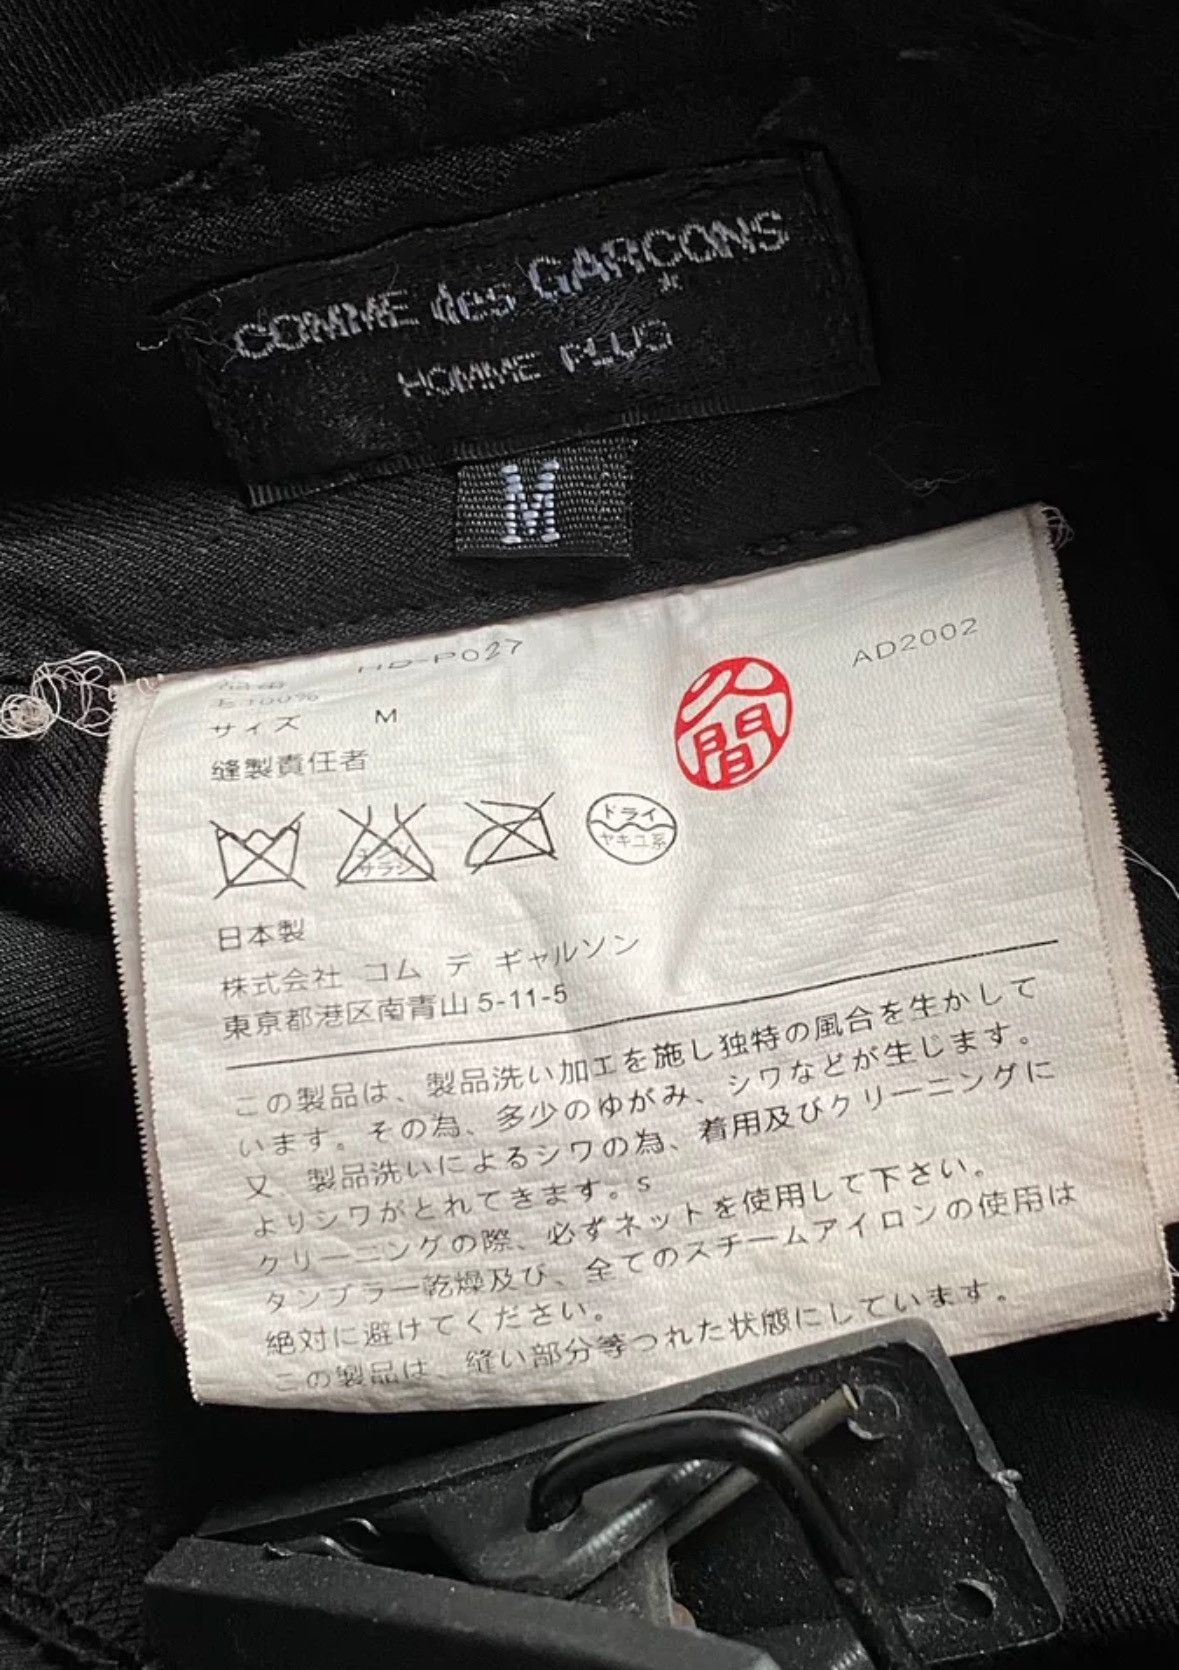 COMME des GARCONS
HOMME PLUS
M
HD-P027
AD2002
毛100%
サイズ M
縫製責任者
久間
エンソ
サラシ
ドライ
セキユ系
日本製
株式会社 コム デ ギャルソン
東京都港区南青山5-11-5
この製品は、製品洗い加工を施し独特の風合を生かして
います。その為、多少のゆがみ、シワなどが生じます。
又、製品洗いによるシワの為、着用及びクリーニングに
よりシワがとれてきます。s
クリーニングの際、必ずネットを使用して下さい。
タンブラー乾燥及び、全てのスチームアイロンの使用は
絶対に避けてください。
この製品は、縫い部分等つれた状態にしています。